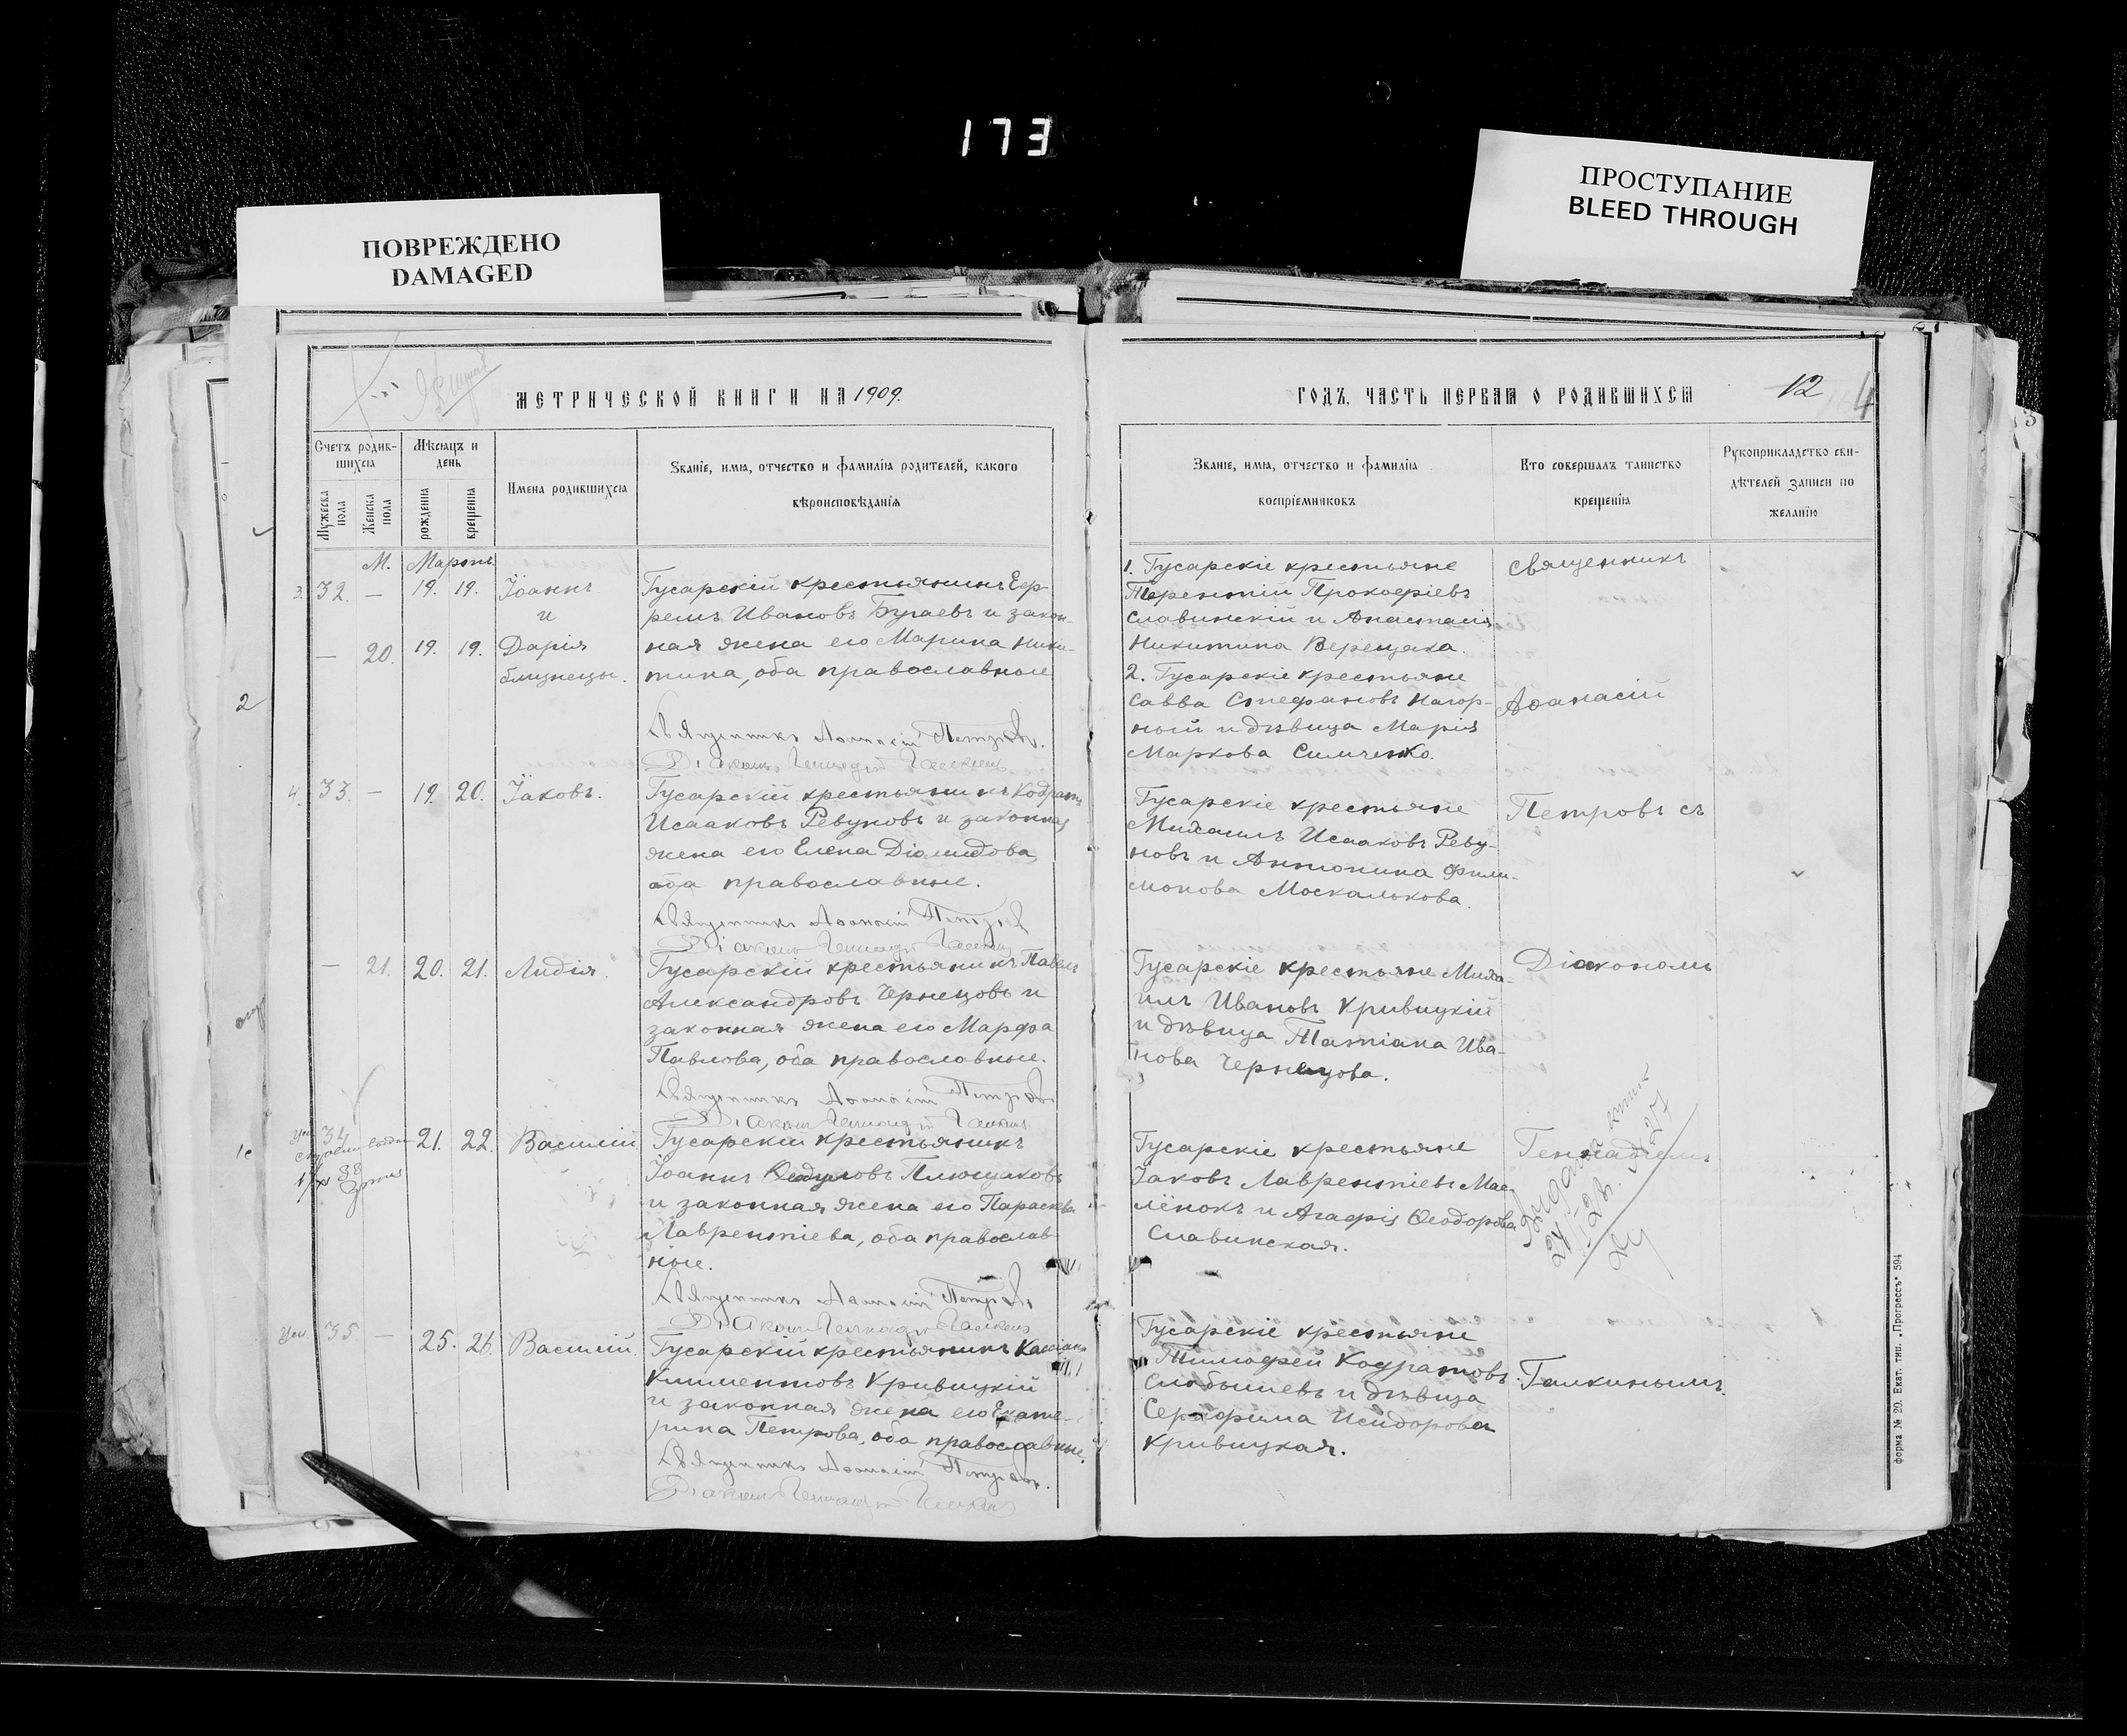 173
ПОВРЕЖДЕНО
DAMAGED
ПРОСТУПАНИЕ
BLEED THROUGH
МЕТРИЧЕСКОЙ КНИГИ НА 1909.
Счетъ родив-
шихся
Мѣсяцъ и
день
Имена родившихся
Званіе, имя, отчество и фамилія родителей, какого
вѣроисповѣданія
Мужеска пола
Женска пола
рожденія
крещенія
М. Мартъ
3. 32. — 19. 19. Іоаннъ
и
— 20. 19. 19. Дарія
близнецы.
Гусарскій крестьянинъ Еф-
ремъ Ивановъ Бугаевъ и закон-
ная жена его Марина Ники-
тина, оба православные
Священникъ Аѳанасій Петровъ.
Діаконъ Геннадій Галкинъ
4. 33. — 19. 20. Іаковъ.
Гусарскій крестьянинъ Кодратъ
Исааковъ Ревуновъ и законная
жена его Елена Діомидова,
оба православные.
Священникъ Аѳанасій Петровъ
Діаконъ Геннадій Галкинъ
— 21. 20. 21. Лидія.
Гусарскій крестьянинъ Павелъ
Александровъ Чернецовъ и
законная жена его Марфа
Павлова, оба православные.
Священникъ Аѳанасій Петровъ
Діаконъ Геннадій Галкинъ
34 21. 22. Василій
Гусарскій крестьянинъ
Іоаннъ Плющаковъ
и законная жена его Параскева
Лаврентіева, оба православ-
ные.
Священникъ Аѳанасій Петровъ
Діаконъ Геннадій Галкинъ
Ум. 35. — 25. 26. Василій.
Гусарскій крестьянинъ Кассіанъ
Климентовъ Кривицкій
и законная жена его Екате-
рина Петрова, оба православные.
Священникъ Аѳанасій Петровъ.
Діаконъ Геннадій Галкинъ
2
ГОДЪ, ЧАСТЬ ПЕРВАЯ О РОДИВШИХСЯ
12
4
Званіе, имя, отчество и фамилія
воспріемниковъ
Кто совершалъ таинство
крещенія
Рукоприкладство сви-
дѣтелей записи по
желанію
1. Гусарскіе крестьяне
Терентій Прокофіевъ
Славинскій и Анастасія
Никитина Верещака.
2. Гусарскіе крестьяне
Савва Стефановъ Нагор-
ный и дѣвица Марія
Маркова Симченко.
Гусарскіе крестьяне
Михаилъ Исааковъ Реву-
новъ и Антонина Фили-
монова Москалькова.
Гусарскіе крестьяне Миха-
илъ Ивановъ Кривицкій
и дѣвица Татіана Ива-
нова Чернецова.
Гусарскіе крестьяне
Іаковъ Лаврентіевъ Мас-
лёнокъ и Агафія Ѳеодорова
Славинская.
Гусарскіе крестьяне
Тимофей Кодратовъ
и дѣвица
Серафима Исидорова
Кривицкая.
Священникъ
Аѳанасій
Петровъ съ
Діакономъ
Геннадіемъ
Галкинымъ.
форма № 20. Екат. тип. „Прогрессъ" 594